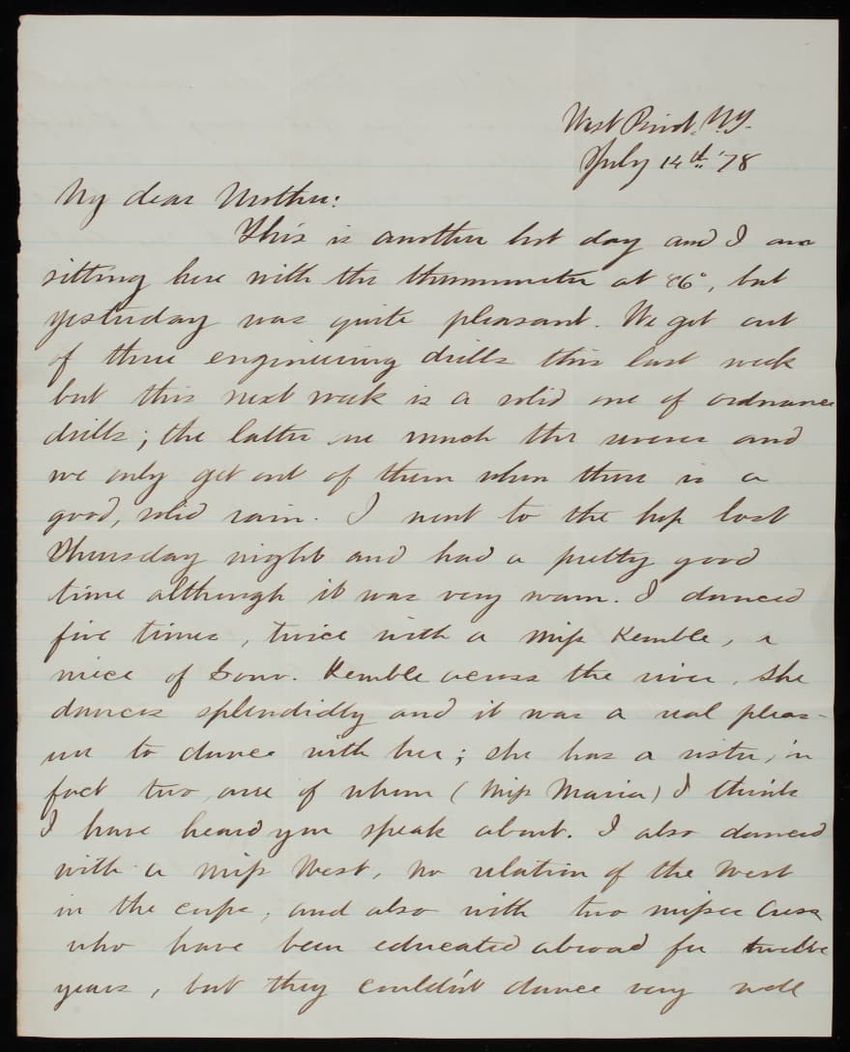 West Point, N.Y.
July 14th '78
My dear Mother:
This is another hot day and I am
sitting here with the thermometer at 86°, but
yesterday was quite pleasant. We got out
of three engineering drills this last week
but this next week is a solid one of ordnance
drills; the latter are much the worse and
we only get out of them when there is a
good, solid rain. I went to the hop last
Thursday night and had a pretty good
time although it was very warm. I danced
five times, twice with a Miss Kemble, a
niece of Gouv. Kemble across the river. She
dances splendidly and it was a real pleas-
ure to dance with her; she has a sister, in
fact two, one of whom (Miss Maria) I think
I have heard you speak about. I also danced
with a Miss West, no relation of the West
in the corps, and also with two misses
who have been educated abroad for twelve
years, but they couldn't dance very well